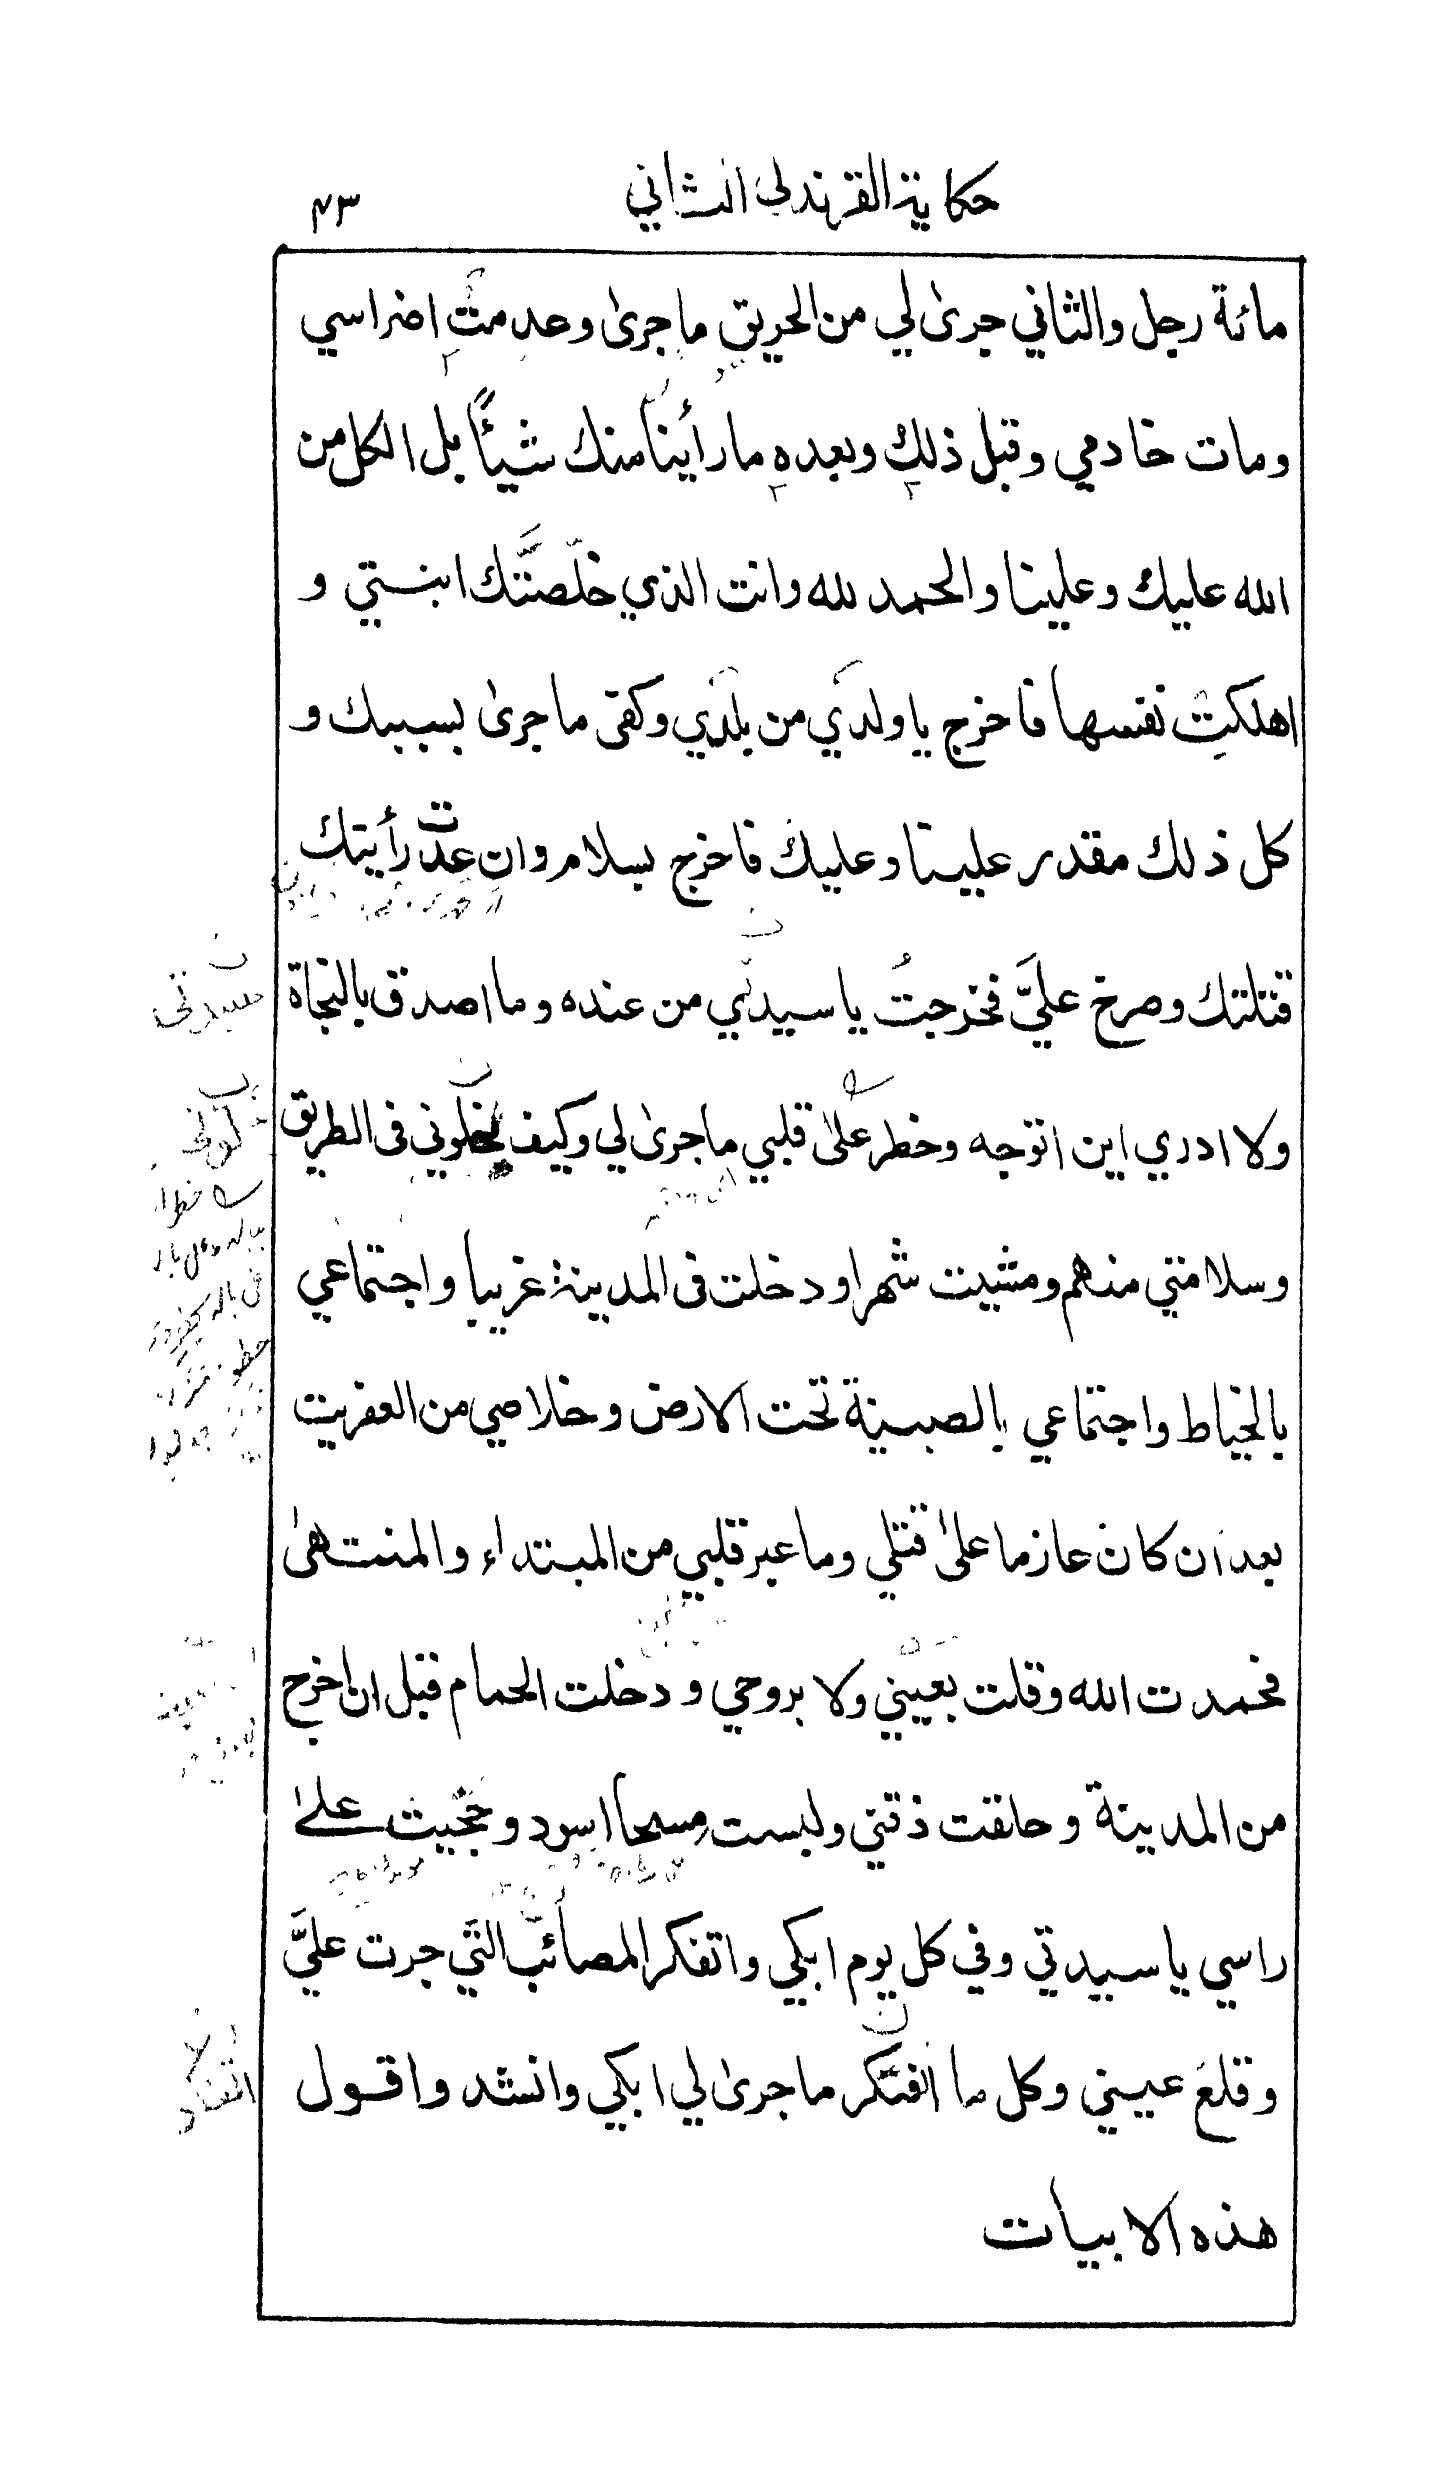 حكاية القرندلي الثاني ٤٣
مائة رجل والثاني جرىٰ لي من الحريق ما جرىٰ وعدمتْ اضراسي
ومات خادمي وقبل ذلك وبعده ما رأينا منك شيأً بل الكل من
الله عليك وعلينا والحمد لله وانت الذي خلّصتَّك ابنتي و
اهلكتِ نفسها فاخرج يا ولدي من بلدي وكفى ما جرىٰ بسببك و
كل ذلك مقدر علينا وعليك فاخرج بسلام وان عدّت رأيتك
قتلتك وصرخ عليَّ فخرجتُ يا سيدتي من عنده وما اصدق بالنجاة
ولا ادري اين اتوجه وخطر علىٰ قلبي ما جرىٰ لي وكيف خلوني فى الطريق
وسلامتي منهم ومشيت شهرا ودخلت فى المدينة غريبا واجتماعي
بالخياط واجتماعي بالصبية تحت الارض وخلاصي من العفريت
بعد ان كان عازما علىٰ قتلي وما عبر قلبي من المبتداء والمنتهىٰ
فحمدت الله وقلت بعيني ولا بروحي ودخلت الحمام قبل ان اخرج
من المدينة وحلقت ذقني ولبست مِسحا اسود وحجّيت علىٰ
راسي يا سيدتي وفي كل يوم ابكي واتفكر المصائب التي جرت عليَّ
وقلعَ عيني وكل ما اتفكر ما جرىٰ لي ابكي وانشد واقول
هذه الابيات
سيدتي